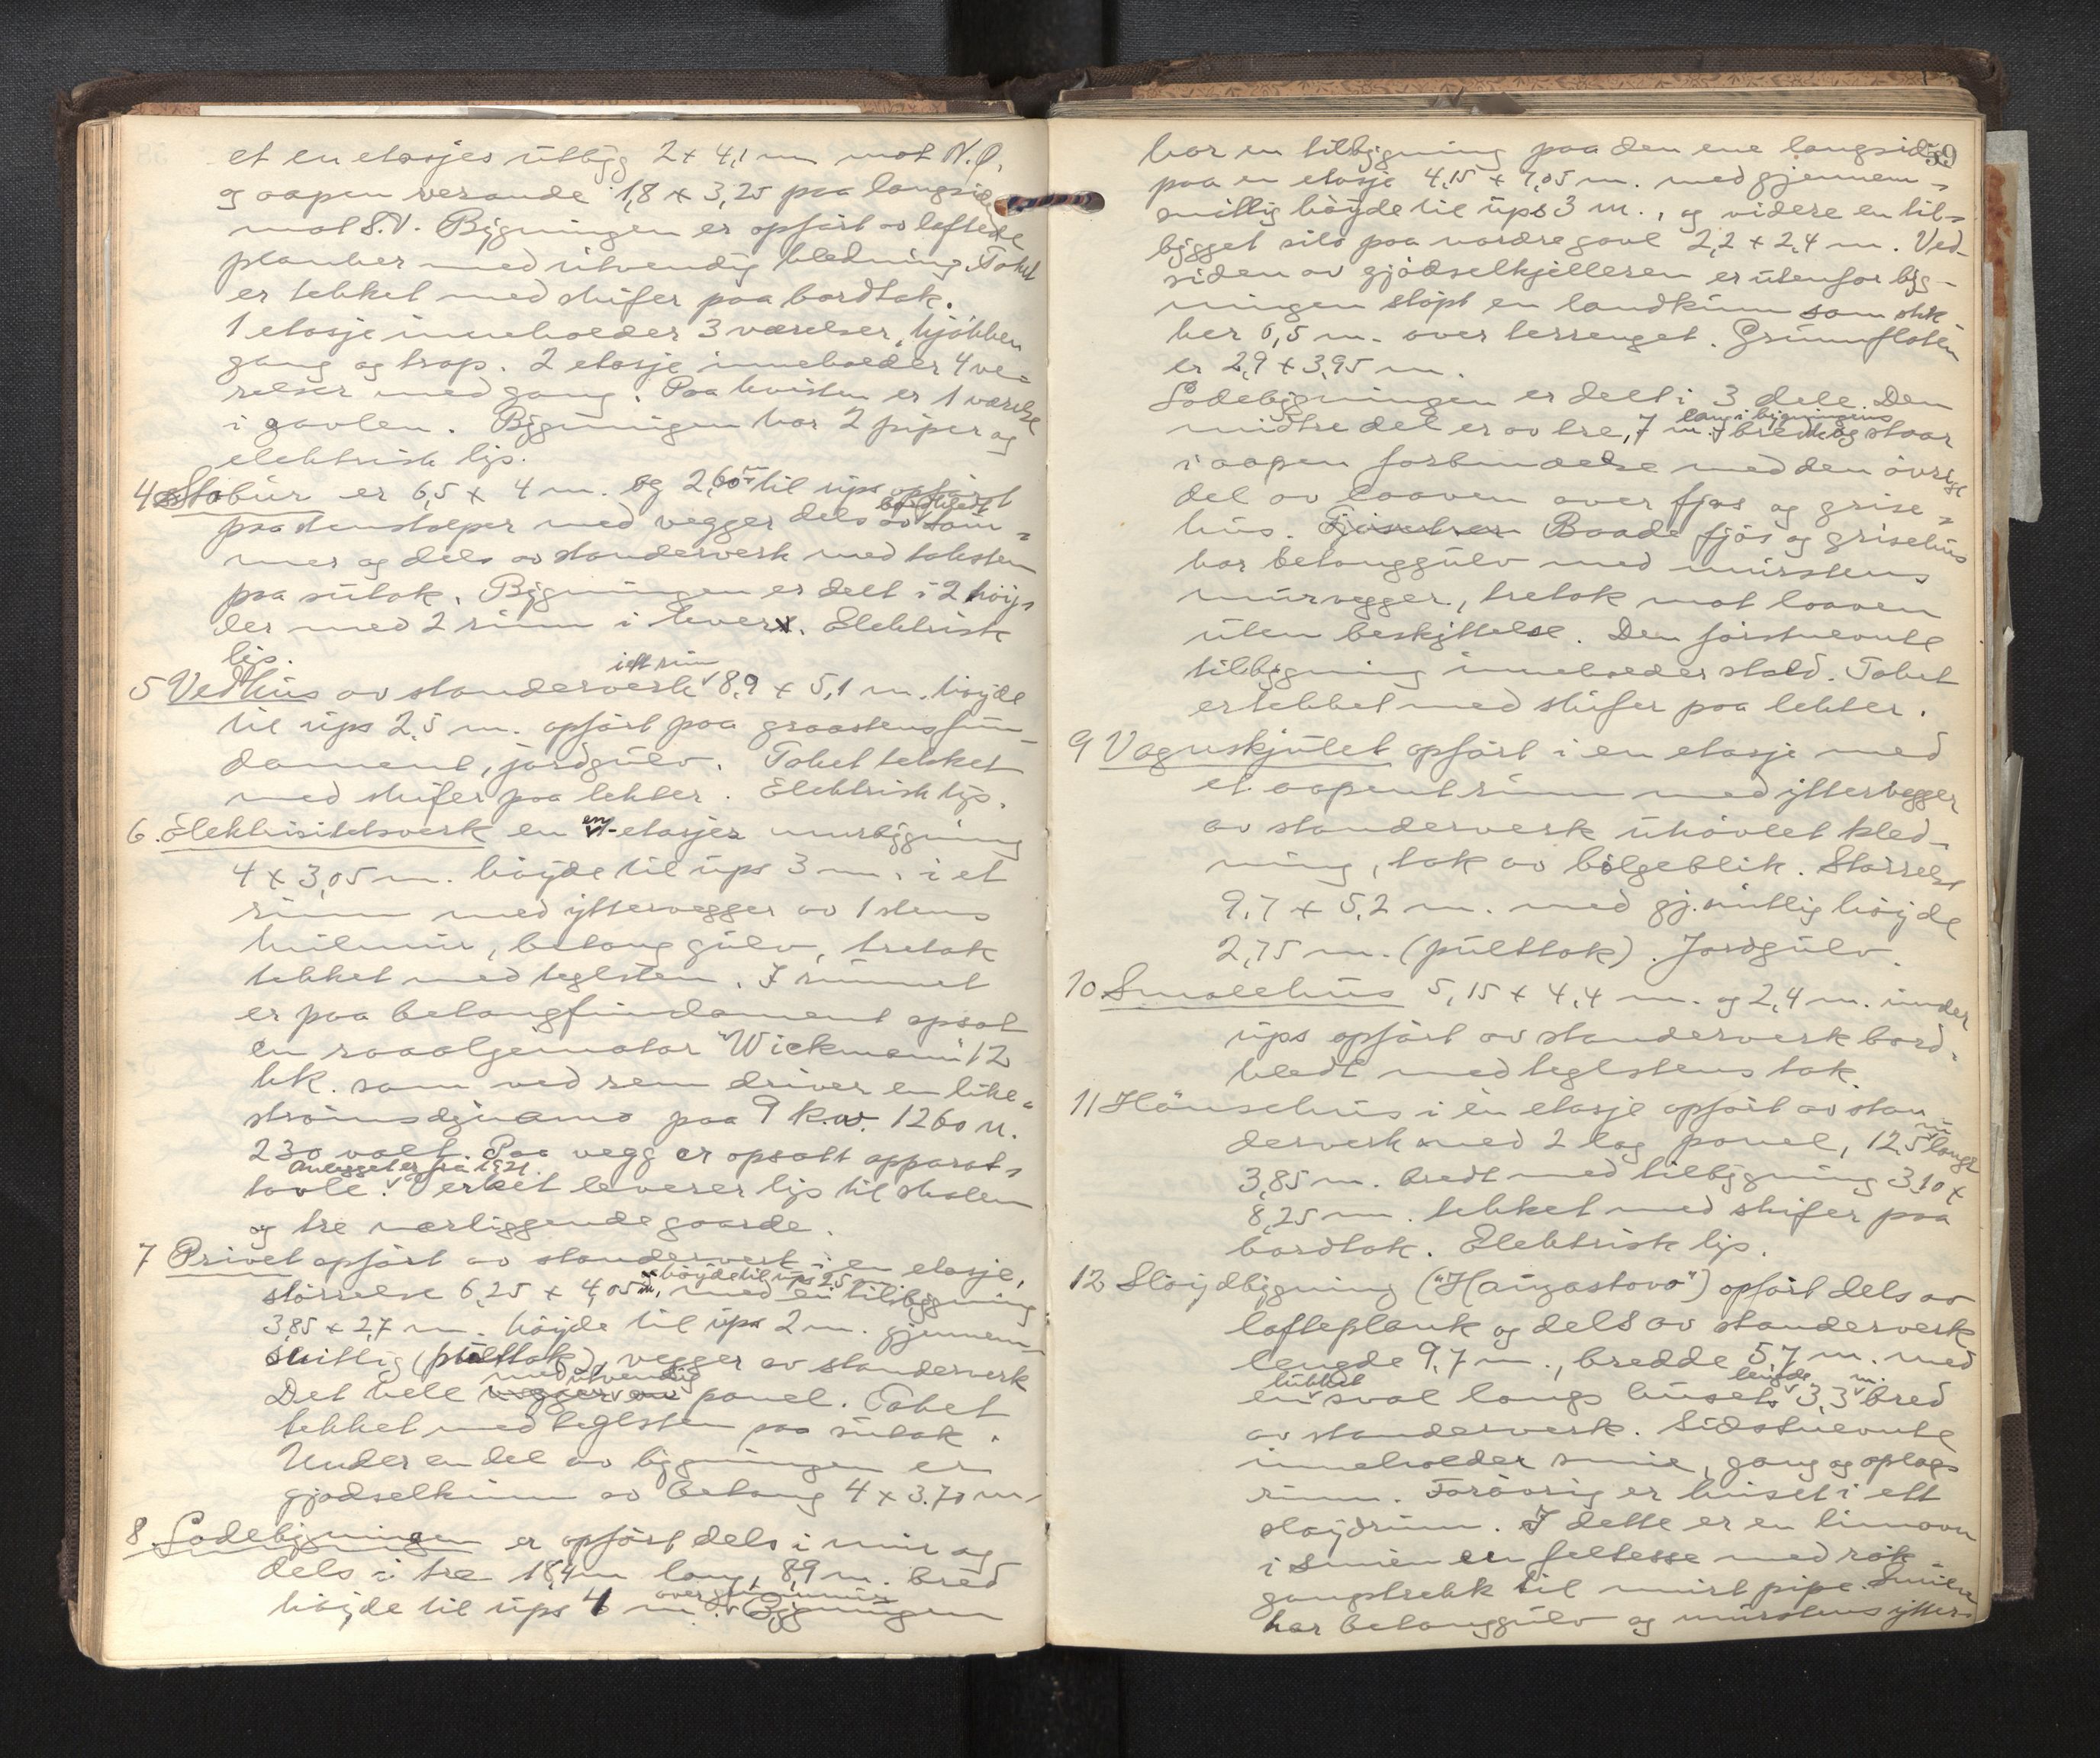 et en etasjes utbyg 2 x 4,1 m mot N.Ø.
og aapen veranda 1,8 x 3,25 paa langside
mot S.V. Bygningen er opført av laftede
planker med utvendig kledning. Taket
er tekket med skifer paa bordtak.
1 etasje inneholder 3 værelser, kjøkken
gang og trap. 2 etasje inneholder 4 væ-
relser med gang. Paa kvisten er 1 værelse
i gavlen. Bygningen har 2 piper og
elektrisk lys.
4 Stabur er 6,5 x 4 m. og 2,60 m til ups opført
paa stenstolper med vegger dels av tøm-
mer og dels av standerverk med taksten
paa sutak. Bygningen er delt i 2 høy-
der med 2 rum i hver. Elektrisk
lys.
i ett rum
5 Vedhus av standerverk 8,9 x 5,1 m. høyde
til ups 2,5 m. opført paa graastensfun-
dament, jordgulv. Taket tekket
med skifer paa lekter. Elektrisk lys.
6. Elektrisitetsverk en en-etasjes murbygning
4 x 3,05 m. høyde til ups 3 m. i et
rum med yttervegger av 1 stens
hulmur, betong gulv, tretak
tekket med teglsten. I rummet
er paa betongfundament opsat
en raaoljemotor "Wickmann" 12
hk. som ved rem driver en like-
strømsdynamo paa 9 k.w. 1260 n.
230 volt. Paa vegg er opsatt apparat-
Anlegget er fra 1921.
tavle. Verket leverer lys til skolen
og tre nærliggende gaarde.
7 Privet opført av standerverk i en etasje,
høyde til ups 2,5
størrelse 6,25 x 4,05 m, med en tilbygning
3,85 x 2,7 m. høyde til ups 2 m. gjennem-
snitlig (pulttak), vegger av standerverk
med utvendig
Det hele vegger av panel. Taket
tekket med teglsten paa sutak.
Under en del av bygningen er
gjødselkum av betong 4 x 3.70 m.
8 Ladebygningen er opført dels i mur og
dels i tre 18,4 m lang, 8,9 m. bred
over grunnmur
høyde til ups 4 m. Bygningen
59
har en tilbygning paa den ene langside
paa en etasje 4,15 x 7,05 m. med gjennem-
snitlig høyde til ups 3 m., og videre en til-
bygget silo paa nordre gavl 2,2 x 2,4 m. Ved
siden av gjødselkjelleren er utenfor byg-
ningen støpt en landkum som stik
ker 0,5 m. over terrenget. Grunnflaten
er 2,9 x 3,95 m.
Ladebygningen er delt i 3 dele. Den
lang i bygningens
midtre del er av tre, 7 m. bredde og staar
i aapen forbindelse med den øvrige
del av laaven over fjøs og grise-
hus. Baade fjøs og grisehus
har betonggulv med murstens
murvegger, tretak mot laaven
uten beskyttelse. Den førstnevnte
tilbygning inneholder stald. Taket
er tekket med skifer paa lekter.
9 Vognskjulet opført i en etasje med
et aapent rum med yttervegger
av standerverk uhøvlet kled-
ning, tak av bølgeblik. Størrelse
9,7 x 5,2 m. med gj.snittlig høyde
2,75 m. (pulttak). Jordgulv.
10 Smalehus 5,15 x 4,4 m. og 2,4 m. under
ups opført av standerverk bord-
kledt med teglstens tak.
11 Hønsehus i én etasje opført av stan-
derverk med 2 lag panel, 12,5 m langt
3,85 m. bredt med tilbygning 3,10 x
8,25 m. tekket med skifer paa
bordtak. Elektrisk lys.
12 Sløydbygning ("Haugastova") opført dels av
lafteplank og dels av standerverk
lengde 9,7 m., bredde 5,7 m. med
lukket lengde m.
en sval langs husets 3,3 bred
av standerverk. Sidstnevnte
inneholder smie, gang og oplags
rum. Forøvrig er huset i ett
sløydrum. I dette er en limovn
i smien en feltesse med røk
gangtrekk til murt pipe. Smien
har betonggulv og murstens ytter-